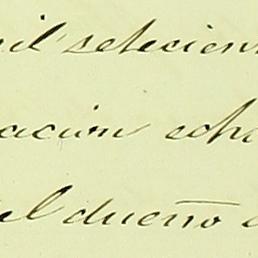 mil setecien
acion echa
el dueño